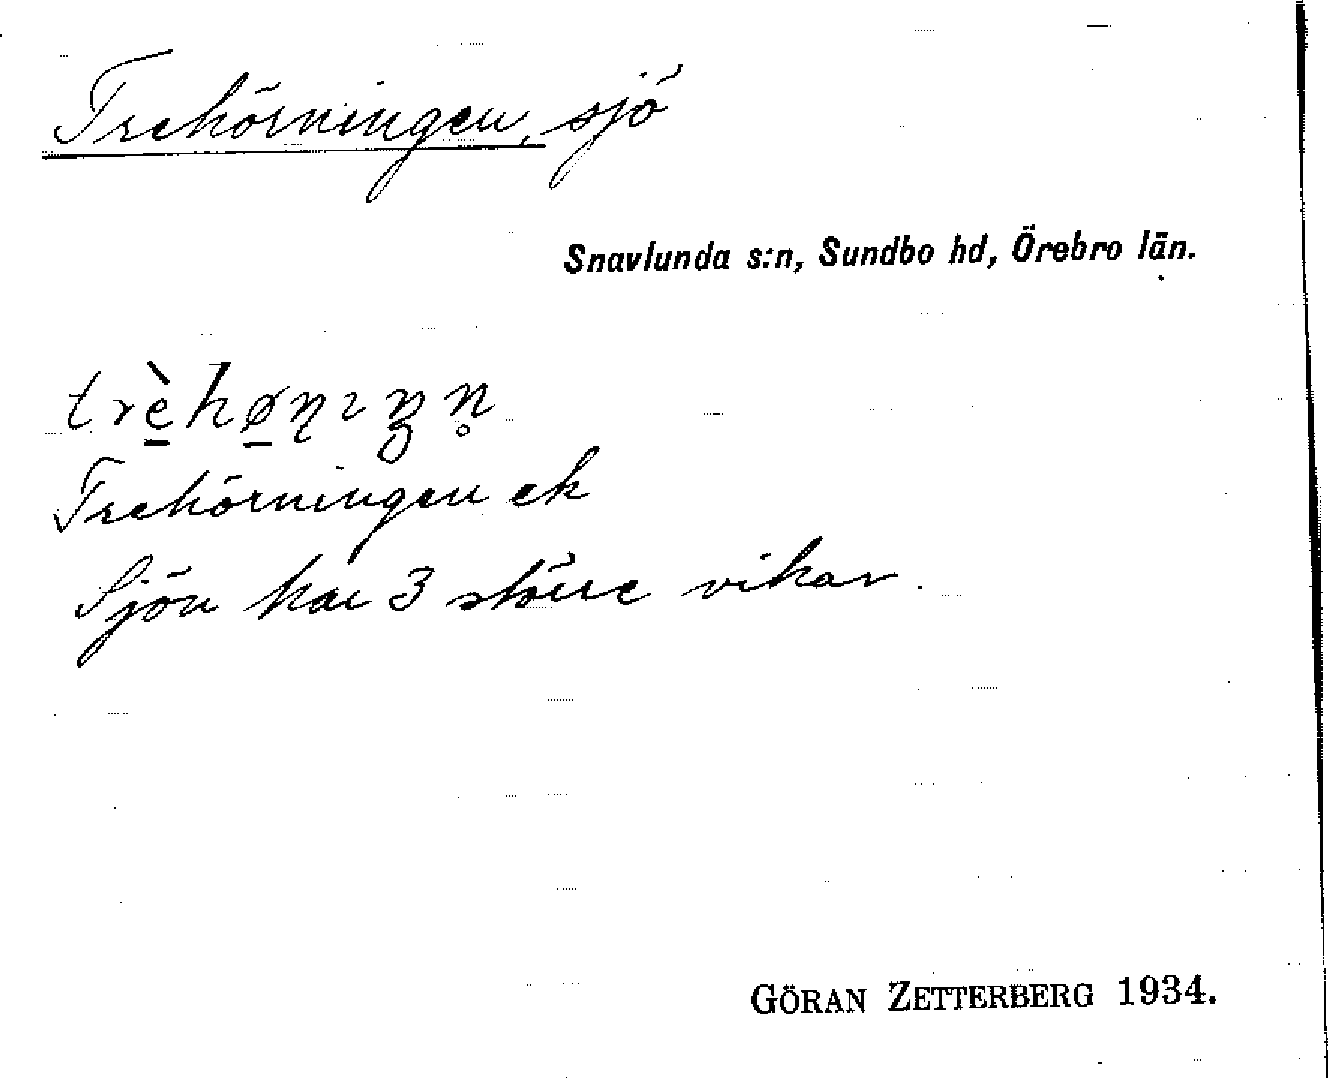 Trehörningen, sjö
Snavlunda s:n, Sundbo hd, Örebro län.
trè̱hø̱ɳıŋn̥
Trehörningen ek
Sjön har 3 större vikar.
GÖRAN ZETTERBERG 1934.